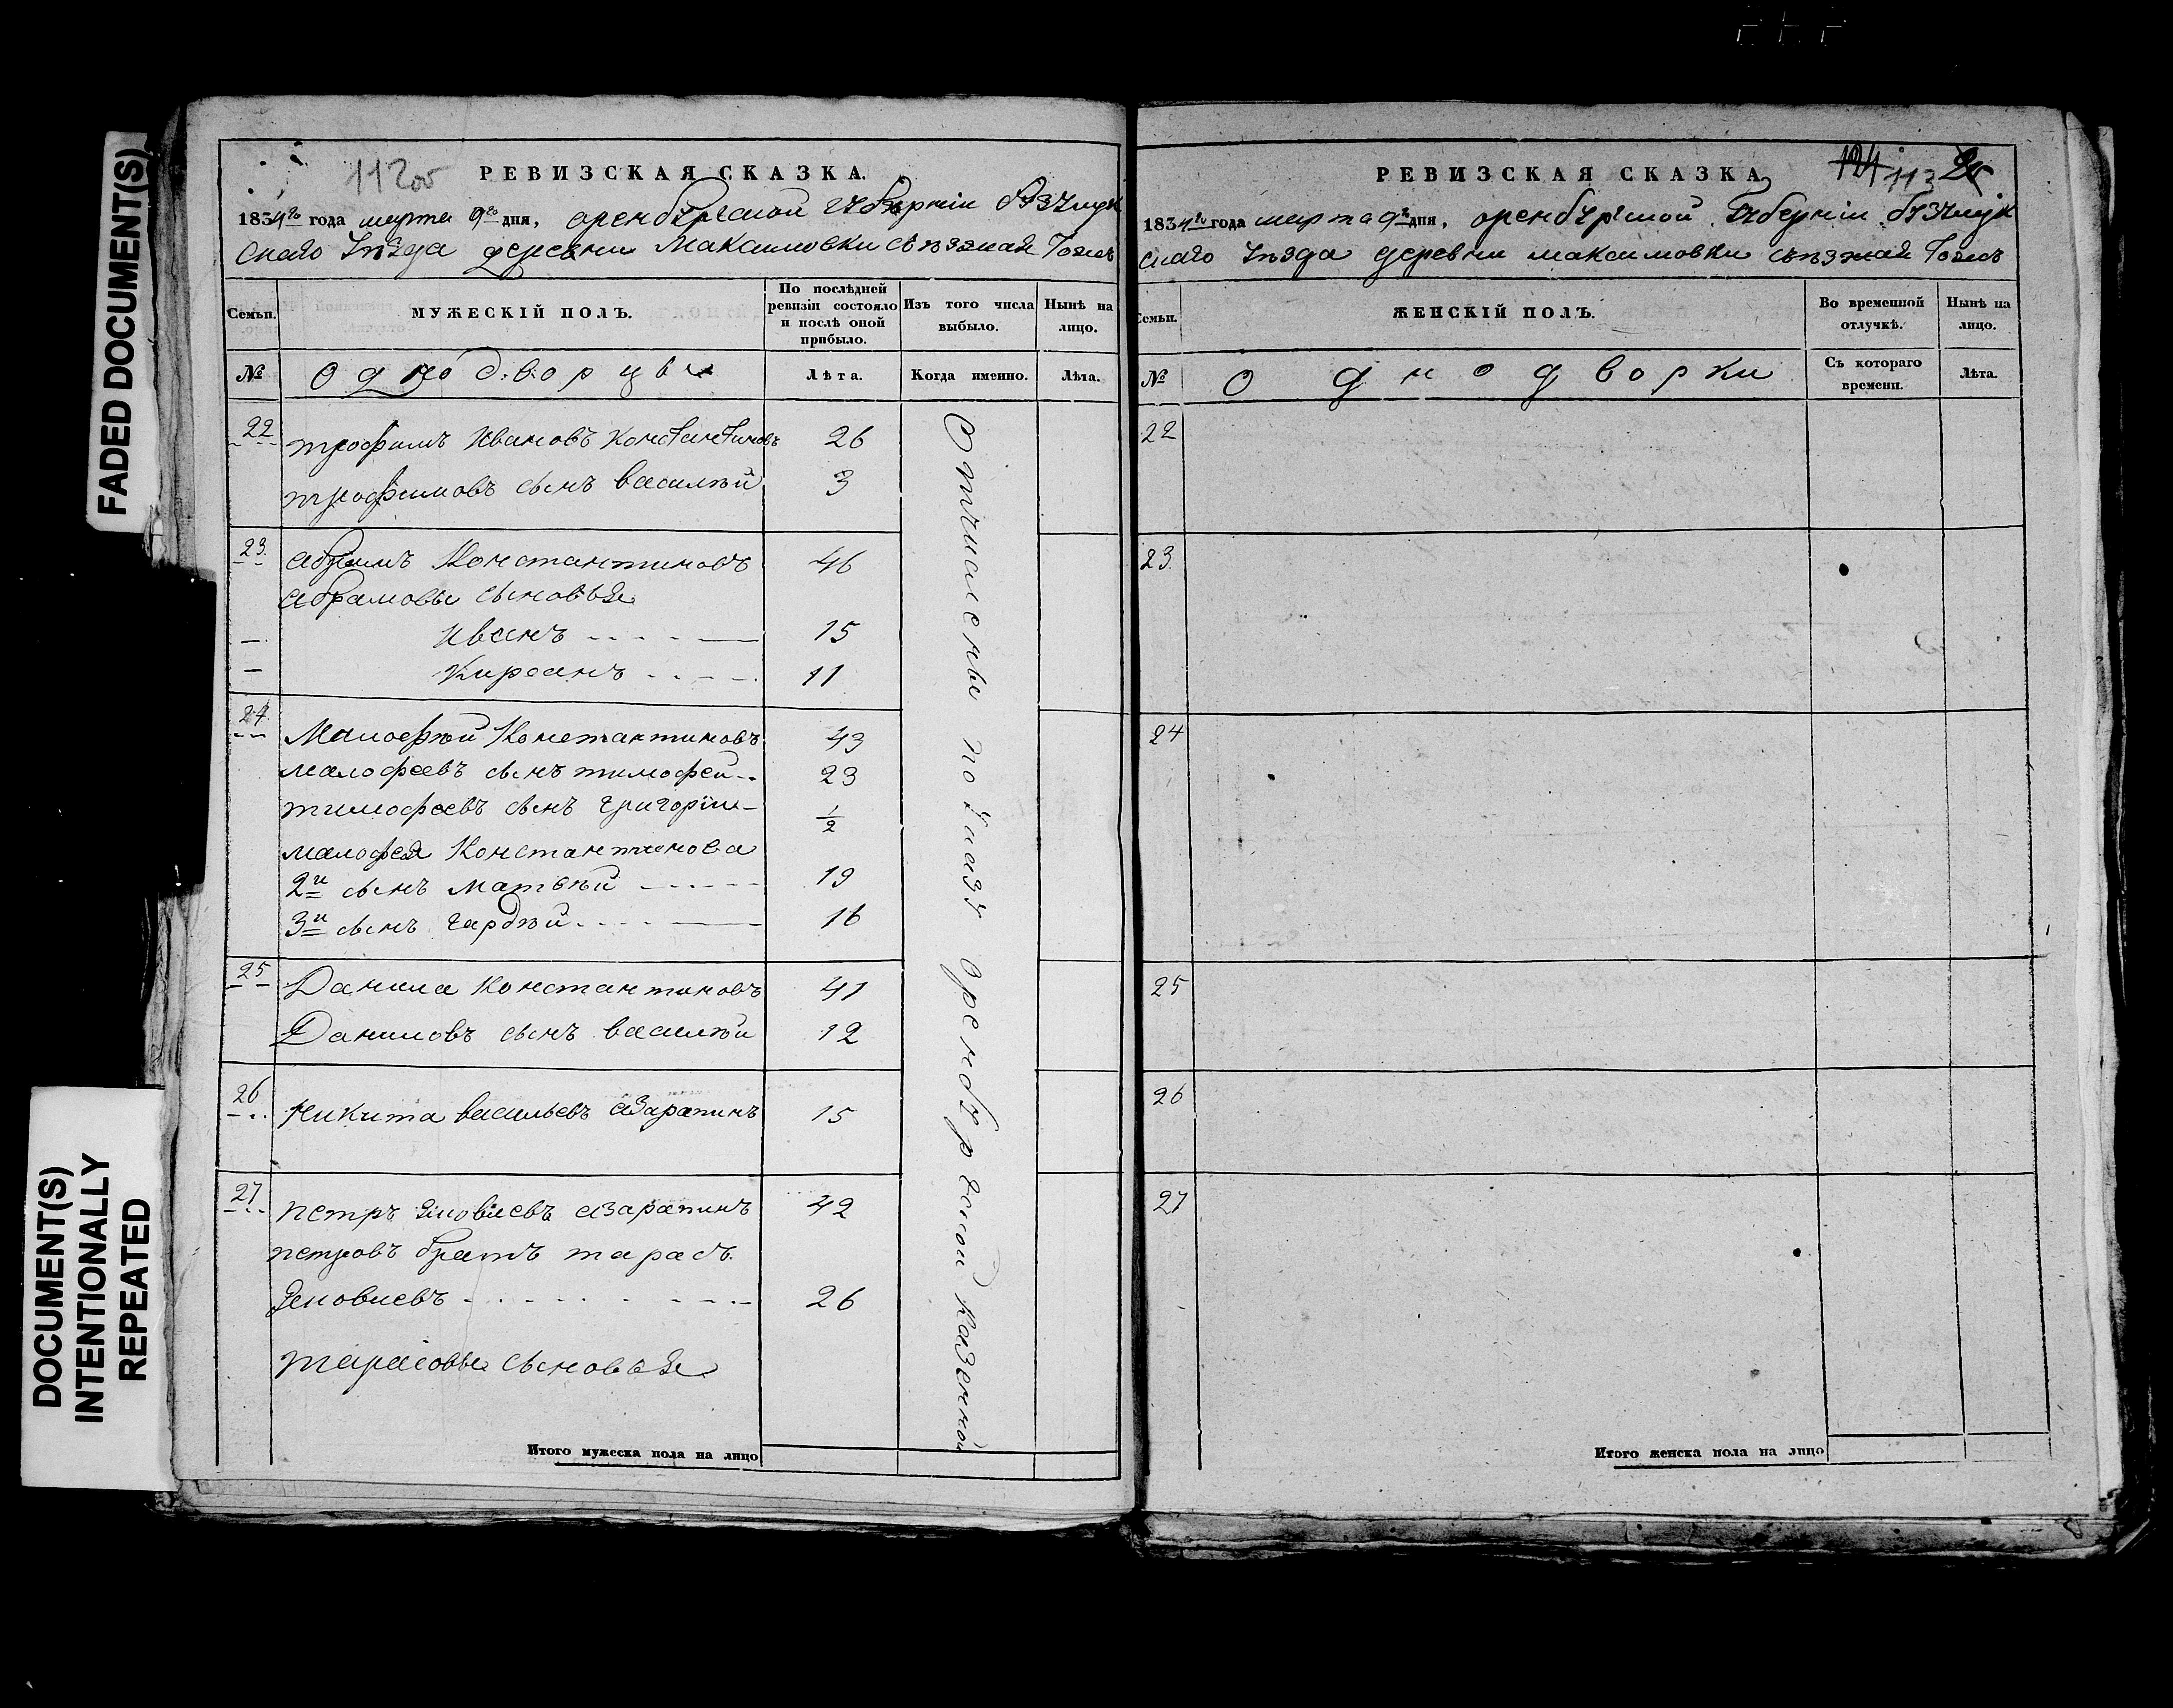 FADED DOCUMENT(S)
DOCUMENT(S)
INTENTIONALLY
REPEATED
112об
РЕВИЗСКАЯ СКАЗКА.
1834го года марта 9го дня, оренбургской губернiи бузулук
скаго уѣзда деревни Максимовки съѣзжая тожъ
Семьи.
МУЖЕСКІЙ ПОЛЪ.
По послѣдней
ревизіи состояло
и послѣ оной
прибыло.
Изъ того числа
выбыло.
Нынѣ на
лицо.
№
Однодворцы
Лѣта.
Когда именно.
Лѣта.
22 трофимъ Ивановъ Константиновъ 26
трофимовъ сынъ василѣй 3
23. абрамъ Константиновъ 46
абрамовы сыновья
Иванъ 15
Кирсанъ 11
24 Малофѣй Константиновъ 43
малофеевъ сынъ тимофей 23
тимофеевъ сынъ григорiи 1/2
малофея Константинова
2й сынъ матвѣй 19
3й сынъ гардѣй 16
25 Данила Константиновъ 41
Даниловъ сынъ василѣй 12
26 Никита васильевъ азарапинъ 15
27 петръ зиновiевъ азарапинъ 42
петровъ братъ тарасъ
Зеновиевъ 26
тарасовы сыновья
Отчислены по указу оренбургской казенной
Итого мужеска пола на лицо
РЕВИЗСКАЯ СКАЗКА
124 113
1834го года марта 9го дня, оренбургской губернiи бузулук
скаго уѣзда деревни максимовки съѣзжая тожъ
Семьи.
ЖЕНСКІЙ ПОЛЪ.
Во временной
отлучкѣ.
Нынѣ на
лицо.
№
Однодворки
Съ котораго
времени.
Лѣта.
22
23.
24
25
26
27
Итого женска пола на лицо